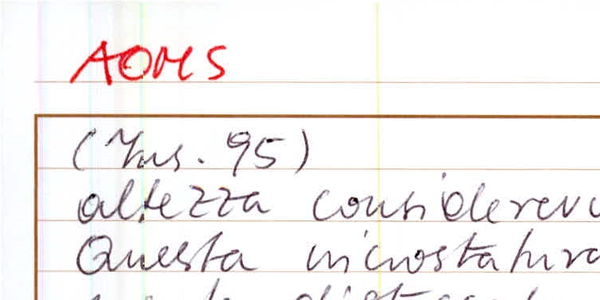 AOMS
(Ins. 95)
altezza considerevo
Questa microstatura